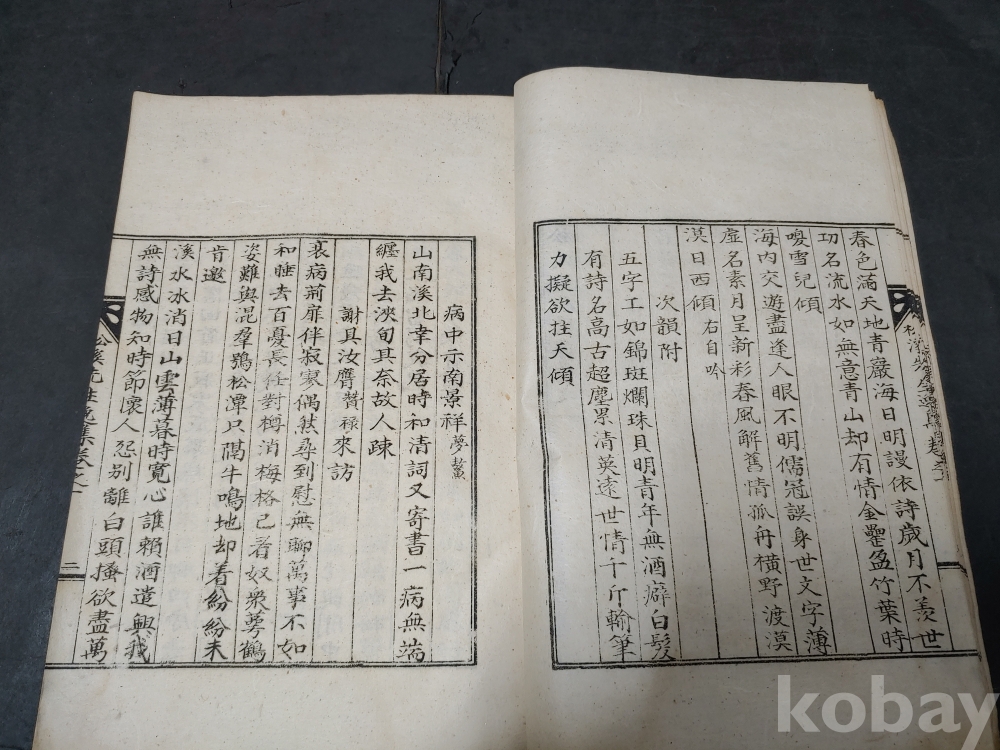 春色滿天地青嚴海日明謾依詩歲月不羨世
功名流水如無意青山却有情金罍盈竹葉時
嗄雪兒傾
海內交遊盡逢人眼不明儒冠誤身世文字薄
虛名素月呈新彩春風解舊情孤舟橫野渡漠
漠日西傾 右自吟
次韻附
五字工如錦斑斕珠貝明青年無酒癖白髮
有詩名高古超塵累清英遠世情千斤輸筆
力擬欲拄天傾
病中示南景祥 夢鰲
山南溪北幸分居時和清詞又寄書一病無端
纏我去浹旬其奈故人踈
謝具汝膺 贊祿 來訪
衰病荊扉伴寂寥偶然尋到慰無聊萬事不如
和睡去百憂長任對樽消梅格已看奴衆萼鶴
姿難與混羣鴞松潭只隔牛鳴地却着紛紛未
肯邀
溪水冰消日山雲薄暮時寬心誰賴酒遣興我
無詩感物知時節懷人忍別離白頭搔欲盡萬
卷之一
二
kobay